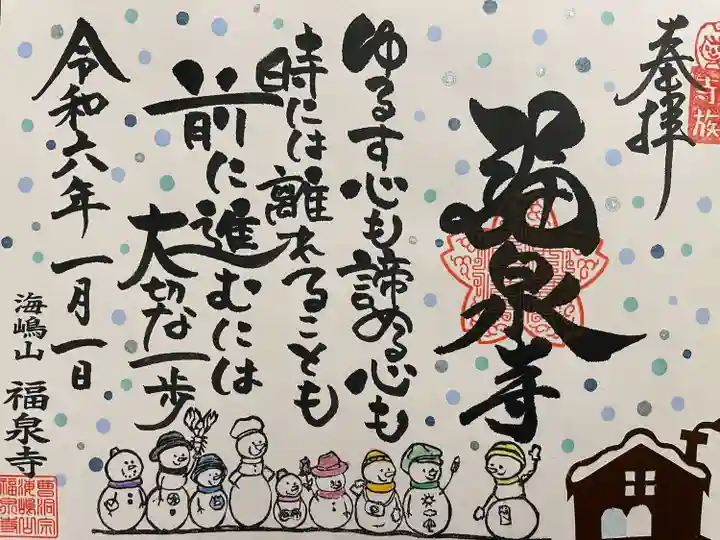 奉拝
寺族
福泉寺
ゆるす心も諦める心も
時には離れることも
前に進むには
大切な一歩
令和六年一月一日
海嶋山 福泉寺